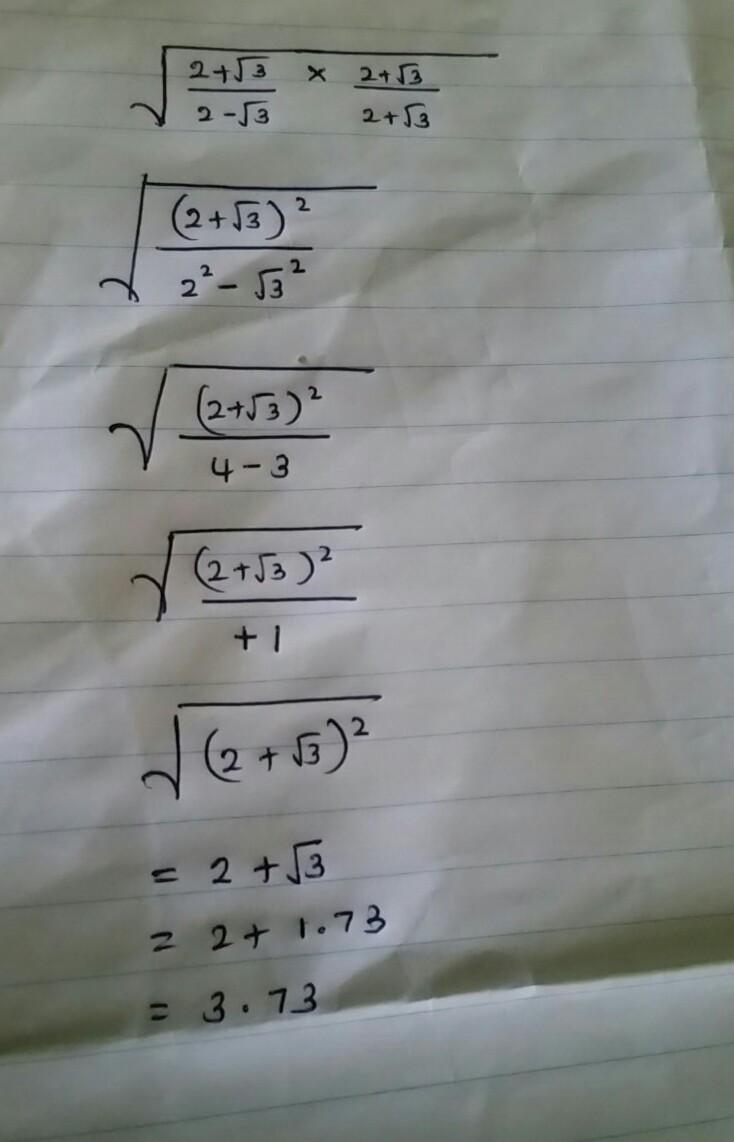 √((2+√3)/(2-√3) × (2+√3)/(2+√3))
√((2+√3)²/(2²-√3²))
√((2+√3)²/(4-3))
√((2+√3)²/(+1))
√((2+√3)²)
= 2+√3
= 2+1.73
= 3.73